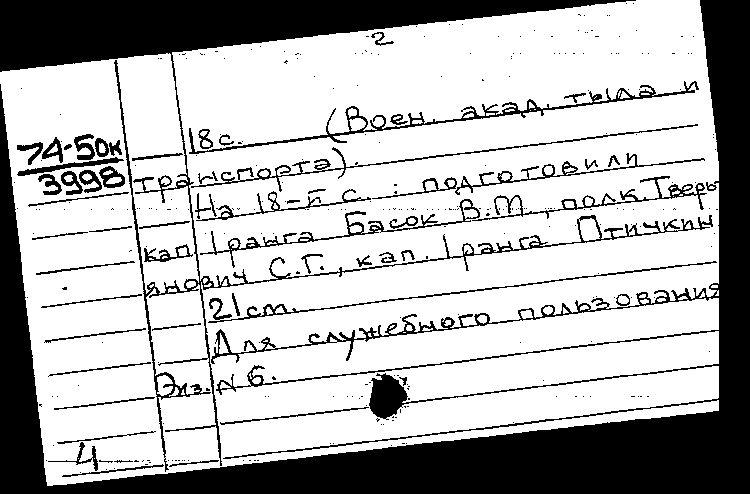 2
74-50к
3998
18 с. (Воен. акад. тыла и
транспорта).
На 18-й с.: подготовили
кап. 1 ранга Басок В.М., полк. Тверь
янович С.Г., кап. 1 ранга Птичкин
21 см.
Для служебного пользования
Экз. N 6.
4